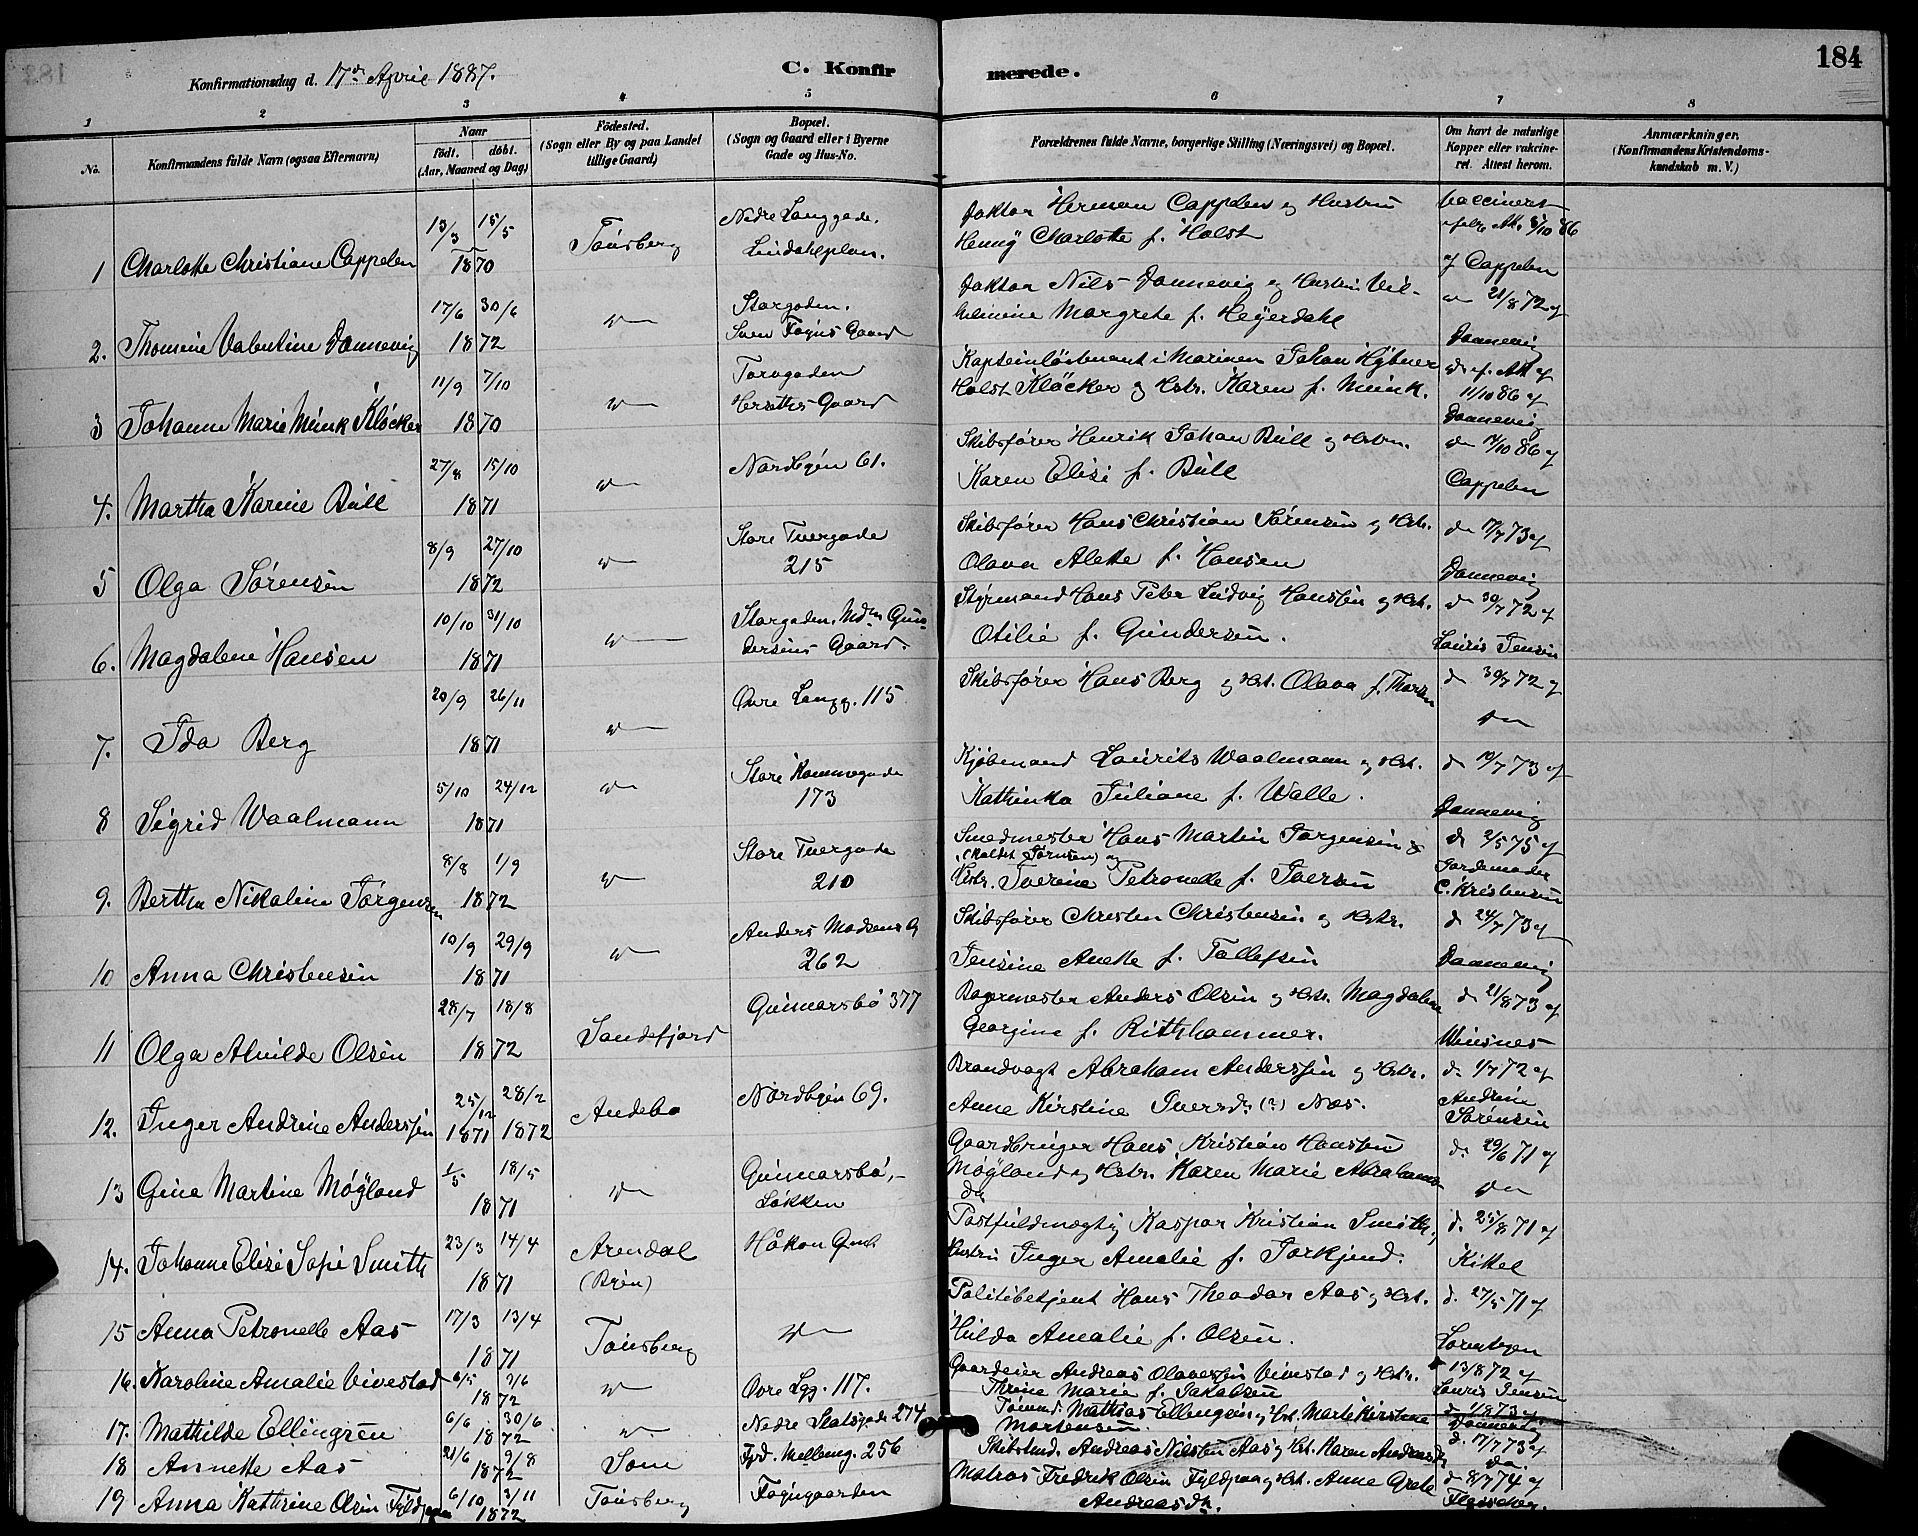 184
Konfirmationsdag d. 17de April 1887.
C. Konfirmerede.
1 2 3 4 5 6 7 8
No.
Konfirmandens fulde Navn (ogsaa Efternavn)
Naar
födt. döbt.
(Aar, Maaned og Dag)
Födested.
(Sogn eller By og paa Landet
tillige Gaard)
Bopæl.
(Sogn og Gaard eller i Byerne
Gade og Hus-No.
Forældrenes fulde Navne, borgerlige Stilling (Næringsvei) og Bopæl.
Om havt de naturlige
Kopper eller vakcine-
ret. Attest herom.
Anmærkninger.
(Konfirmandens Kristendoms-
kundskab m. V.)
1 Charlotte Christiane Cappelen 13/3 15/5 1870 Tönsberg
Nedre Langgade.
Lindahlplan.
Doktor Herman Cappelen og Hustru
Henny Charlotte f. Holst
vaccineret
af Cappelen
2. Thomine Valentine Dannevig 17/6 30/6 1872
Storgaden.
Sven Foyns Gaard
Doktor Nils Dannevig og Hustru Vil-
helmine Margrete f. Heyerdahl
21/8 72 af
Dannevig
3 Johanne Marie Munk Klöcker 11/9 7/10 1870
Torvgaden
Gaard
Kapteinlöitenant i Marinen Johan Hybner
Holst Klöcker og Hstr. Karen f. Munk.
11/10 86 af
Dannevig
4. Martha Karine Bull 27/8 15/10 1871
Nordbyen 61.
Skibsförer Henrik Johan Bull og Hstr.
Karen Elise f. Bull
14/10 86 af
Cappelen
5 Olga Sörensen 8/9 27/10 1872
Store Tvergade
215
Skibsförer Hans Christian Sörensen og Hstr.
Olava Alette f. Hansen
17/7 73 af
Dannevig
6. Magdalene Hansen 10/10 31/10 1871
Storgaden, Mdm Gun-
dersens Gaard.
Styrmand Hans Peter Ludvig Hanssen og Hstr.
Otilie f. Gundersen.
30/7 72 af
Lauris Jensen
7. Ida Berg 20/9 26/11 1871
Övre Langg. 115
Skibsförer Hans Berg og Hst. Olava f. Thorsen
30/7 72 af
8 Sigrid Waalmann 5/10 24/12 1871
Store Kammegade
173
Kjöbmand Laurits Waalmann og Hst.
Kathinka Juliane f. Walle.
10/7 73 af
Dannevig
9. Bertha Nikoline Jörgensen 8/8 1/9 1872
Store Tvergade
210
Smedmester Hans Martin Jörgensen
(kaldet Sörensen) og
Hstr. Iverine Petronelle f. Iversen
2/5 75 af
Jordemoder
C. Kristensen
10 Anna Christensen 10/9 29/9 1871
Anders Madsens G
262
Skibsförer Christen Christensen og Hstr.
Jensine Anette f. Tollefsen
24/7 73 af
Dannevig
11 Olga Alvilde Olsen 28/7 18/8 1872 Sandefjord
Gunnarsbö 377
Bagermester Anders Olsen og Hstr. Magdalene
Georgine f. Ritthammer.
21/8 73 af
Winsnes
12. Inger Andrine Anderssen 25/12 1871 28/2 1872 Andebo
Nordbyen 69.
Brandvagt Abraham Anderssen og Hstr.
Anne Kirstine Iversd. (?) Næs.
1/7 72 af
Andrine
Sörensen
13 Gina Martine Møyland 1/5 18/5 1871
Gunnarsbö,-
Løkken
Gaardbruger Hans Kristian Hanssen
Møyland og Hstr. Karen Marie Abrahams-
dr
29/6 71 af
14. Johanne Elise Sofie Smith 23/3 14/4 1871
Arendal
(Byen)
Håkon G.
Postfuldmægtig Kaspar Kristian Smith,
Hustru Inger Amalie f. Torkjend.
d. 25/8 71 af
Kittel
15 Anna Petronelle Aas 17/3 13/4 1871 Tönsberg
Politibetjent Hans Theodor Aas og Hst.
Hulda Amalie f. Olsen.
d. 27/5 71 af
Lorentzen
16. Karoline Amalie Vivestad 6/5 2/6 1872
Övre Lgg. 117.
Gaardeier Andreas Olavesen Vivestad og Hstr.
Thrine Marie f. Jakobsen
13/8 72 af
Lauris Jensen
17. Mathilde Ellingsen 6/6 30/6 1872
Nedre Slotsgade 274
Tömmd. Mathias Ellingsen og Hst. Marte Kirstine
Mortensen
1/8 73 af
Dannevig
18 Annette Aas 21/6 9/8 1872 Sem
Fjd. Mellemg. 256
Skibstmd. Andreas Nilsen Aas og Hst. Karen Andreasdr
d. 17/7 73 af
do.
19 Anna Kathrine Olsen Fyldpaa 6/10 3/11 1872 Tönsberg
Foyngaarden
Matros Fredrik Olsen Fyldpaa og Hst. Anne Grete
Andreasdr.
d 8/7 74 af